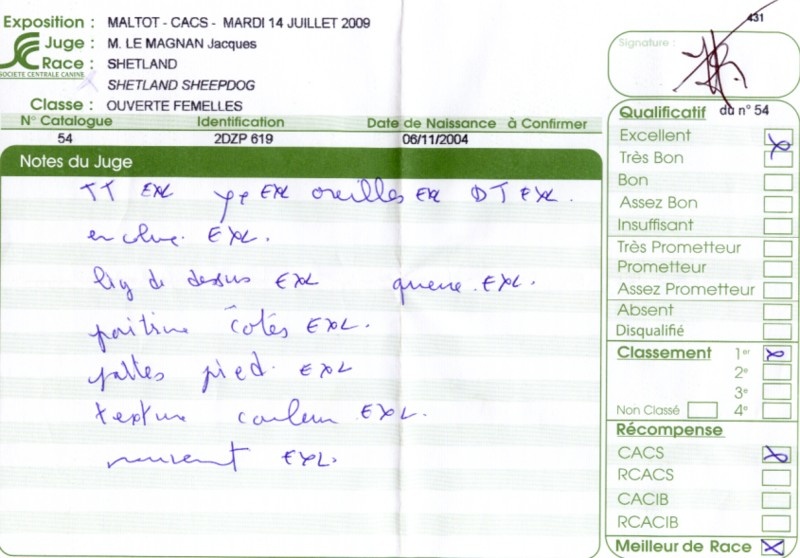 Exposition : MALTOT - CACS - MARDI 14 JUILLET 2009
Juge : M. LE MAGNAN Jacques
Race : SHETLAND
SOCIETE CENTRALE CANINE
SHETLAND SHEEPDOG
Classe : OUVERTE FEMELLES
N° Catalogue Identification Date de Naissance à Confirmer
54 2DZP 619 06/11/2004
Notes du Juge
TT EXL EXL oreilles EXL DT EXL.
EXL.
lig de dessus EXL queue EXL.
poitrine côtés EXL.
pattes pied. EXL
texture couleur EXL.
mouvement EXL.
431
Signature :
Qualificatif du n° 54
Excellent
Très Bon
Bon
Assez Bon
Insuffisant
Très Prometteur
Prometteur
Assez Prometteur
Absent
Disqualifié
Classement 1er
2e
3e
Non Classé 4e
Récompense
CACS
RCACS
CACIB
RCACIB
Meilleur de Race